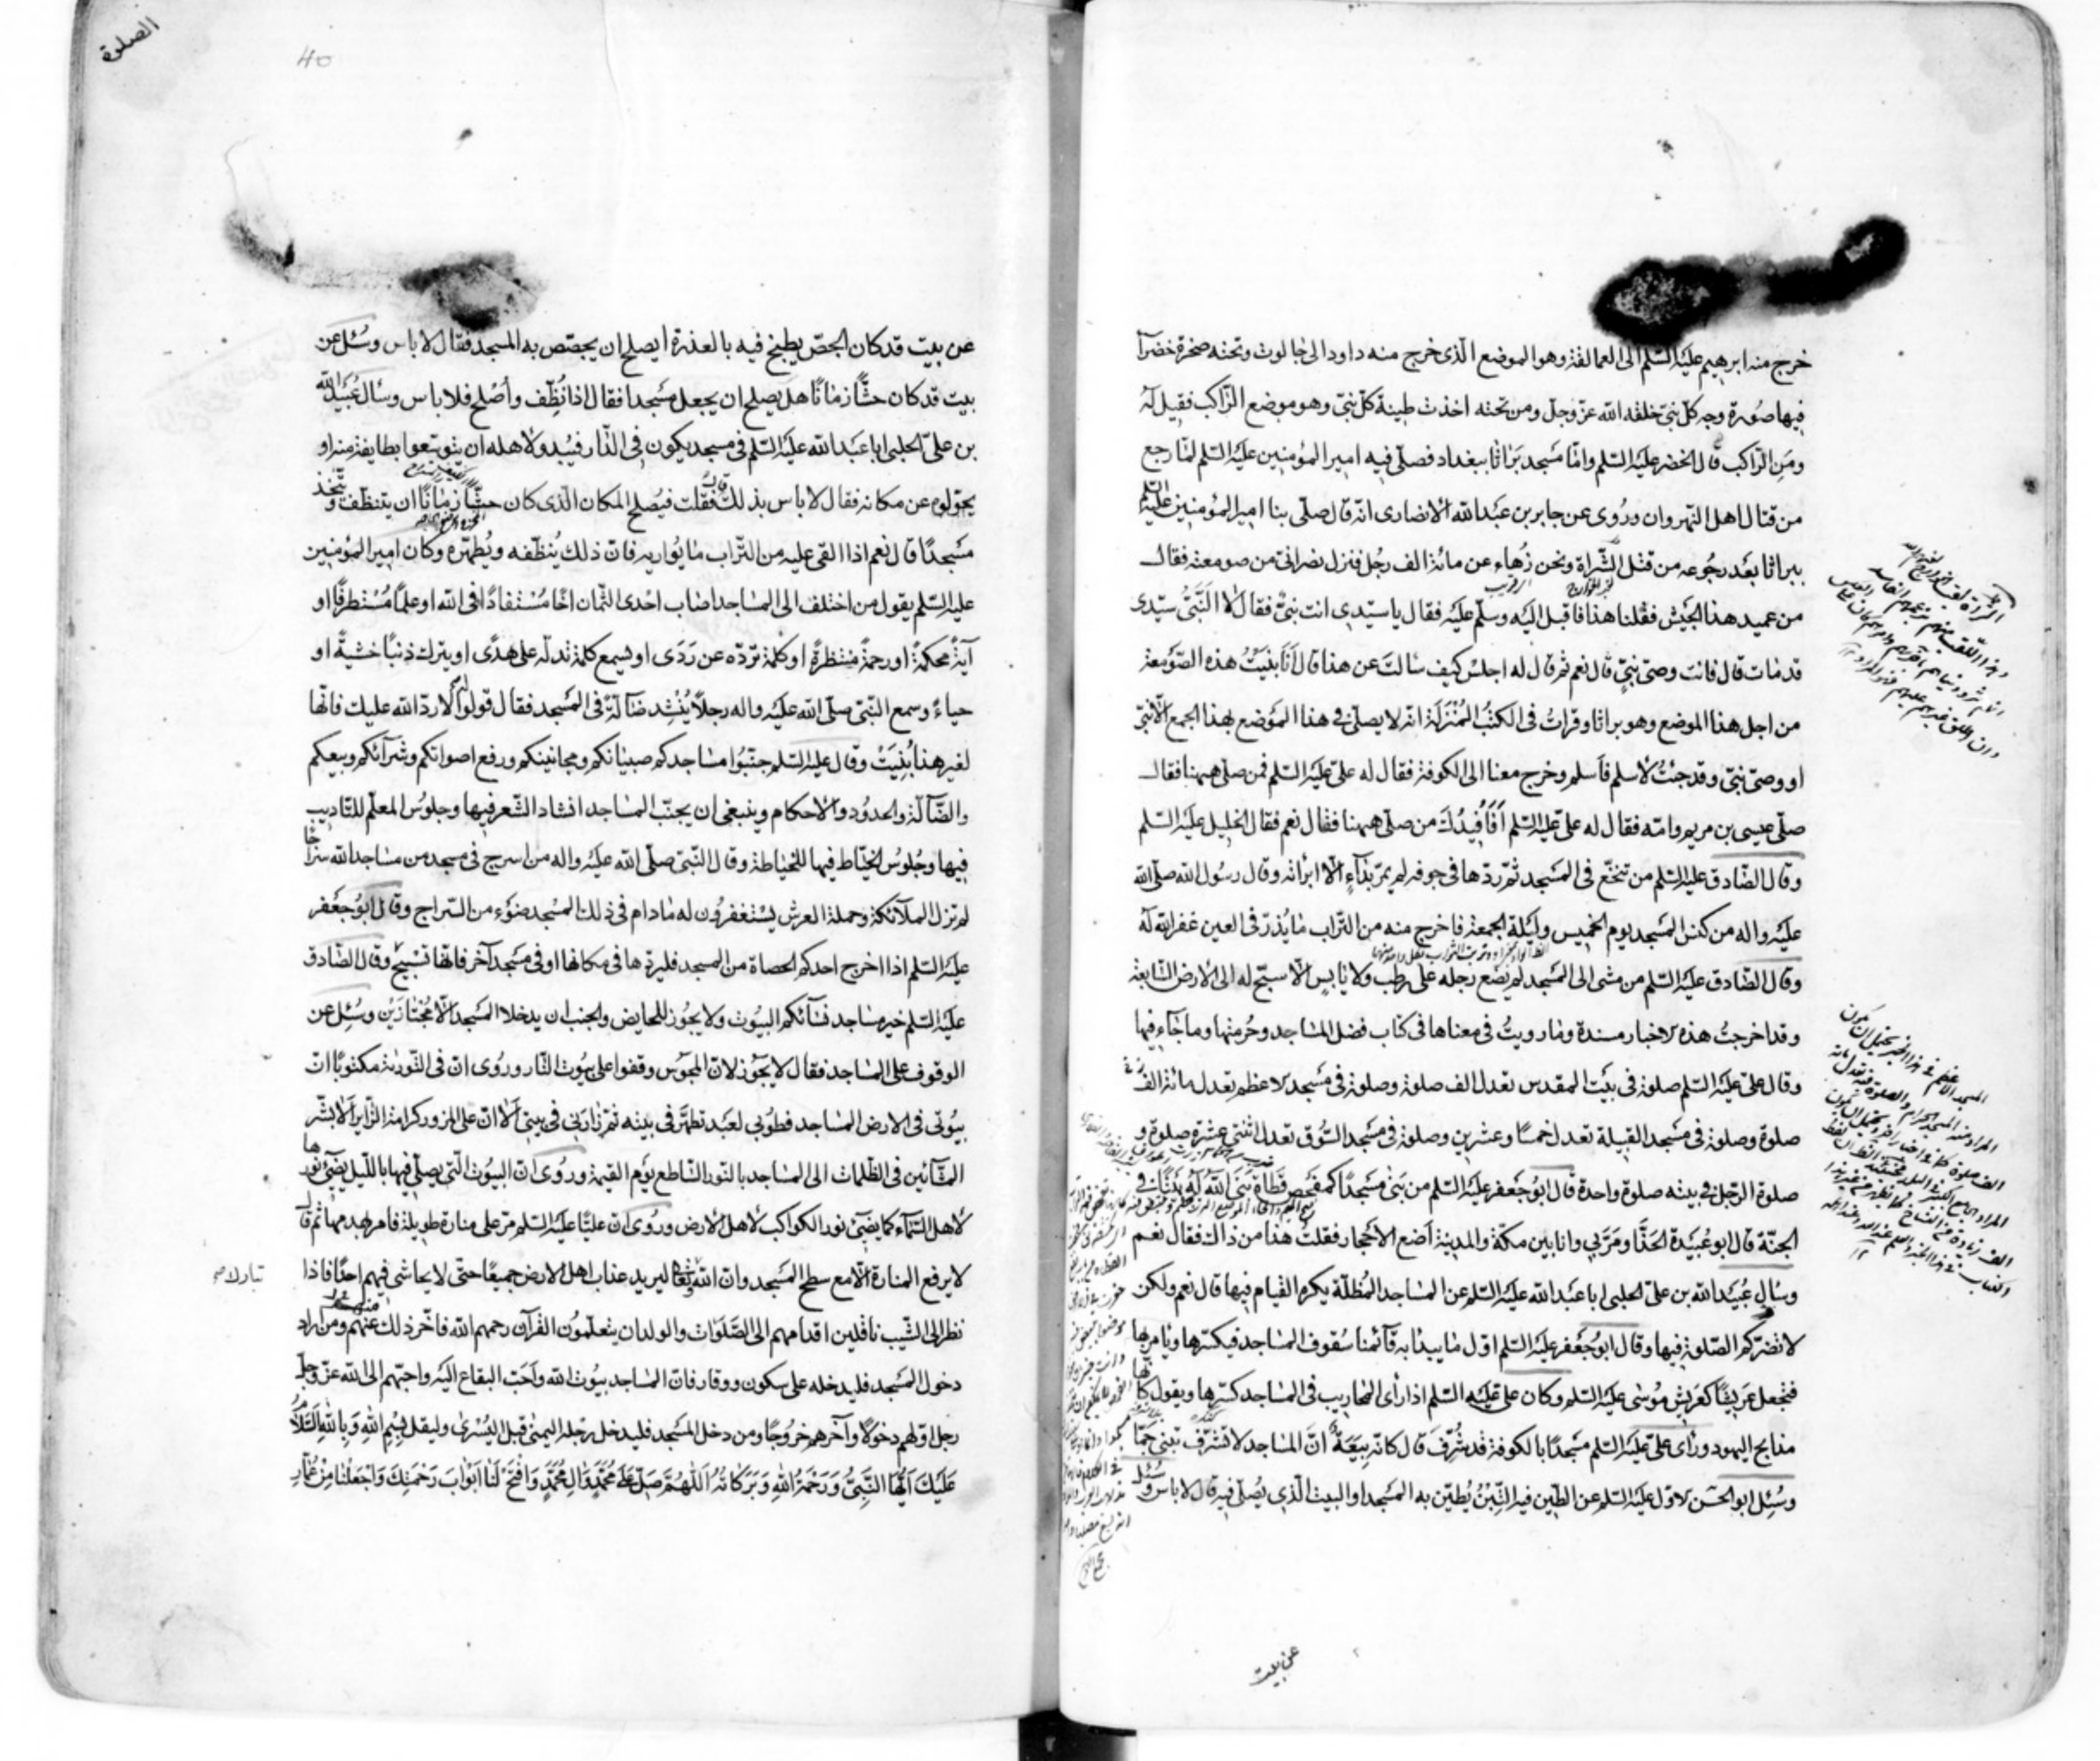 خرج منه ابرهيم عليه السّلم الى العمالقة وهو الموضع الّذى خرج منه داود الى جالوت وتحته صخرة خضرآ
فيها صُورة وجه كلّ نبىّ خلقه الله عزّ وجلّ ومن تحته اخذت طينة كلّ نبىّ وهو موضع الرّاكب فقيل له
ومَن الرّاكب قال الخضر عليه السّلم وامّا مسجد بَراثا ببغداد فصلّى فيه امير المؤمنين عليه السّلم لمّا رجع
من قتال اهل النّهروان ورُوى عن جابر بن عبدالله الانصارى انّه قال صلّى بنا امير المؤمنين عليه السّلم
ببراثا بعد رجُوعه من قتل الشّراة ونحن زُهاء عن مائة الف رجُل فنزل نصرانىّ من صومعته فقال
من عميد هذا الجيش فقلنا هذا فاقبل اليه وسلّم عليه فقال يا سيّدى انت نبىّ فقال لا النّبىّ سيّدى
قد مات قال فانت وصىّ نبىّ قال نعم ثم قال له اجلسْ كيف سالتَ عن هذا قال اَنَا بنيتُ هذه الصّومعة
من اجل هذا الموضع وهو براثا وقراتُ فى الكتبُ المُنْزَلة انّه لا يصلّى فى هذا الموضع بهذا الجمع الّا نبىّ
او وصىّ نبىّ وقد جئتُ لاُسلم فاَسلم وخرج معنا الى الكوفة فقال له علىّ عليه السّلم فمن صلّى هيهنا فقال
صلّى عيسى بن مريم وامّه فقال له علىّ عليه السّلم اَفَاُفيدُكَ من صلّى هيهنا فقال نعم فقال الخليل عليه السّلم
وقال الصّادق عليه السّلم من تنخّع فى المسجد ثمّ ردّها فى جوفه لم يمرّ بدآءٍ الّا ابراته وقال رسُول الله صلّى الله
عليه واله من كنس المسجد يوم الخميس وليلة الجمعة فاخرج منه من التّراب ما يُذرّ فى العين غفر الله له
وقال الصّادق عليه السّلم من مشى الى المسجد لم يضع رجله على رطب ولا يابسٍ الّا سبّح له الى الارض السّابعة
وقد اخرجتُ هذه الاخبار مسندة وما رويتُ فى معناها فى كتاب فضل المساجد وحُرمتها وما جاء فيها
وقال علىّ عليه السّلم صلوة فى بيت المقدس تعدل الف صلوة وصلوة فى مسجد الاعظم تعدل مائة الف
صلوة وصلوة فى مسجد القبيلة تعدل خمسًا وعشرين وصلوة فى مسجد السّوق تعدل اثنتى عشرة صلوة و
صلوة الرّجل فى بيته صلوة واحدة قال ابُو جعفر عليه السّلم من بَنى مسجدًا كمفحص قطاة بَنى الله له بيتًا فى
الجنّة قال ابو عُبيدة الحذّا ومَرّ بي وانا بين مكّة والمدينة اَضع الاَحجار فقلتُ هذا من ذاك فقال نعم
وسال عُبيدالله بن علىّ الحلبى ابا عبدالله عليه السّلم عن المساجد المُظلّلة يكره القيام فيها قال نعم ولكن
لا تضرّكم الصّلوة فيها وقال ابُو جعفر عليه السّلم اوّل ما يبدا به قآئمنا سُقوف المساجد فيكسّرها ويامر بها
فتجعل عَريشًا كعَريش مُوسى عليه السّلم وكان علىّ عليه السّلم اذا راى المحاريب فى المساجد كسّرها ويقول كانّها
مذابح اليهود وراى علىّ عليه السّلم مسجدًا بالكوفة قد شُرّفَ قال كانّه بِيعَة انّ المساجد لا تشرّف تبنى جمّا
وسُئِل ابو الحسن الاوّل عليه السّلم عن الطّين فيه التّبْنُ يُطيّن به المسجد او البيت الّذى يُصلّى فيه قال لا باس وسُئل
عن بيت
الصلوة
عن بيت قد كان الجصّ يطبخ فيه بالعذرة ايصلح ان يجصّص به المسجد فقال لا باس وسُئل عن
بيت قد كان حشًّا زمانًا هل يصلح ان يجعل مسجدا فقال اذا نُظّف واُصْلح فلا باس وسئال عُبيدالله
بن علىّ الحلبى ابا عبدالله عليه السّلم فى مسجد يكون فى الدّار فيبدو لاهله ان يتوسّعوا بطايفة منه او
يحوّلوه عن مكانه فقال لا باس بذلك قال فقلت فيصلح المكان الّذى كان حشّا زمانًا ان يتنظّف ويتّخذ
مسجدًا قال نعم اذا القى عليه من التّراب ما يُواريه فانّ ذلك يُنظّفه ويُطهّره وكان امير المؤمنين
عليه السّلم يقول من اختلف الى المساجد اصاب احدى الثّمان اخًا مُسْتفادًا فى الله او علمًا مُسْتطرفًا او
آيةً محكمةً او رحمةً منتظرةً او كلمة تردّه عن رَدَى او يسمع كلمة تدلّه على هدًى او يترك ذنبًا خشيةً او
حياءً وسمع النّبىّ صلّى الله عليه واله رجلًا يُنْشِد ضآلّةً فى المسجد فقال قولُوا له لا ردّ الله عليك فانّها
لغير هذا بُنِيَتْ وقال عليه السّلم جنّبوُا مساجدكم صبيانكم ومجانينكم ورفع اصواتكم وشرآئكم وبيعكم
والضّآلّة والحدُود والاحكام وينبغى ان يجنّب المساجد انشاد الشّعر فيها وجلوُس المعلّم للتّاديب
فيها وجُلوُس الخيّاط فيها للخياطة وقال النّبىّ صلّى الله عليه واله من اسرج فى مسجد من مساجد الله سراجًا
لم تزل الملآئكة وحملة العرش يستغفروُن له مادام فى ذلك المسجد ضَوْء من السّراج وقال ابُو جعفر
عليه السّلم اذا اخرج احدكم الحصاة من المسجد فليردّها فى مكانها او فى مسجد آخر فانّها تسبّح وقال الصّادق
عليه السّلم خير مساجد نسآئكم البيُوت ولا يجُوز للحايض والجنب ان يدخلا المسجد الّا مُجْتازَيْن وسُئِل عن
الوقوف على المساجد فقال لا يجُوز لانّ المجُوس وقفوا على بيُوت النّار ورُوى انّ فى التّورية مكتوبًا انّ
بيُوتى فى الارض المساجد فطُوبى لعَبد تطهّرَ فى بيته ثمّ زارَنِى فى بيتى اَلا انّ على المزور كرامة الزّاير اَلا بشّر
المشّآئين فى الظّلمات الى المساجد بالنّور السّاطع يوم القيمة ورُوى انّ البيُوت الّتى يصلّى فيها باللّيل يضىُ نورها
لاهل السّمآء كما يضىُ نور الكواكب لاهل الارض ورُوى انّ عليّا عليه السّلم مرّ على منارة طويلة فامر بهدمها ثم قال
لا يرفع المنارة الّا مع سطح المسجد وانّ الله تعالى ليريد عذاب اهل الارض جميعًا حتّى لا يحاشى فيهم احدًا فاذا
نظر الى الشّيب ناقلين اقدامهم الى الصّلَوَات والولدان يتعلّمون القرآن رحمهم الله فاخّر ذلك عنهم ومن اراد
دخول المسجد فليدخله على سكون ووقار فانّ المساجد بيُوت الله واَحَبّ البقاع اليه واحبّهم الى الله عزّ وجلّ
رجل اوّلهم دخولًا وآخرهم خرُوجًا ومن دخل المسجد فليدخل رجله اليمنى قبل اليُسْرى وليقل بِسْمِ اللهِ وَبِاللهِ اَلسّلامُ
عَلَيكَ اَيّهَا النّبِىُّ وَرَحْمَةُ اللهِ وَبَرَكاتُهُ اَللّهُمَّ صَلّ عَلى مُحَمّدٍ وَالِ مُحَمّدٍ وَافْتَحْ لَنا اَبْوابَ رَحْمَتِكَ وَاجْعَلْنا مِنْ عُمّارِ